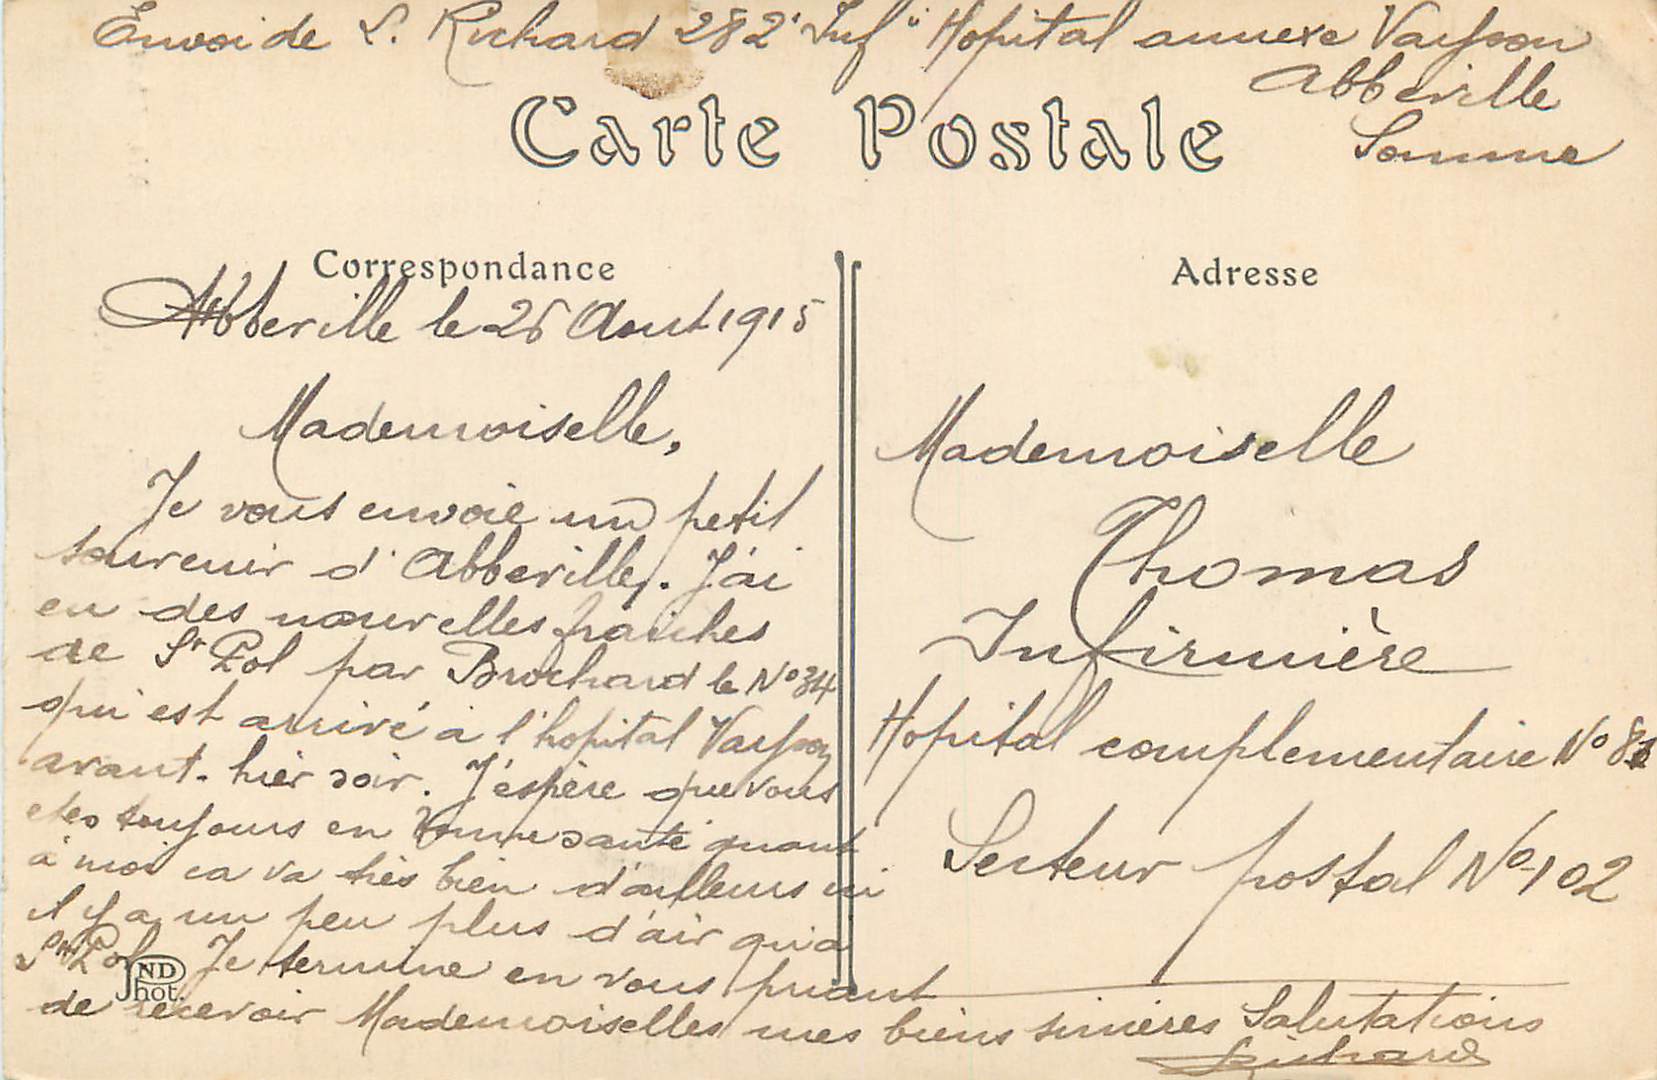 Envoi de L. Richard 282e Inf ie Hopital annexe Vayson
Abbeville
Somme
Carte Postale
Correspondance
Adresse
Abbeville le 26 Aout 1915
Mademoiselle,
Je vous envoie un petit
souvenir d'Abbeville. J'ai
eu des nouvelles fraiches
de St Pol par Brochard le No 34
qui est arrivé à l'hopital Vayson
avant-hier soir. J'éspère que vous
etes toujours en bonne santé quant
à moi ca va très bien d'ailleurs ici
il y a un peu plus d'air qu'a
St Pol. Je termine en vous priant
de recevoir Mademoiselles mes biens sincères Salutations
Richard
Mademoiselle
Thomas
Infirmière
Hopital complementaire No 81
Secteur postal No 102
ND
Phot.